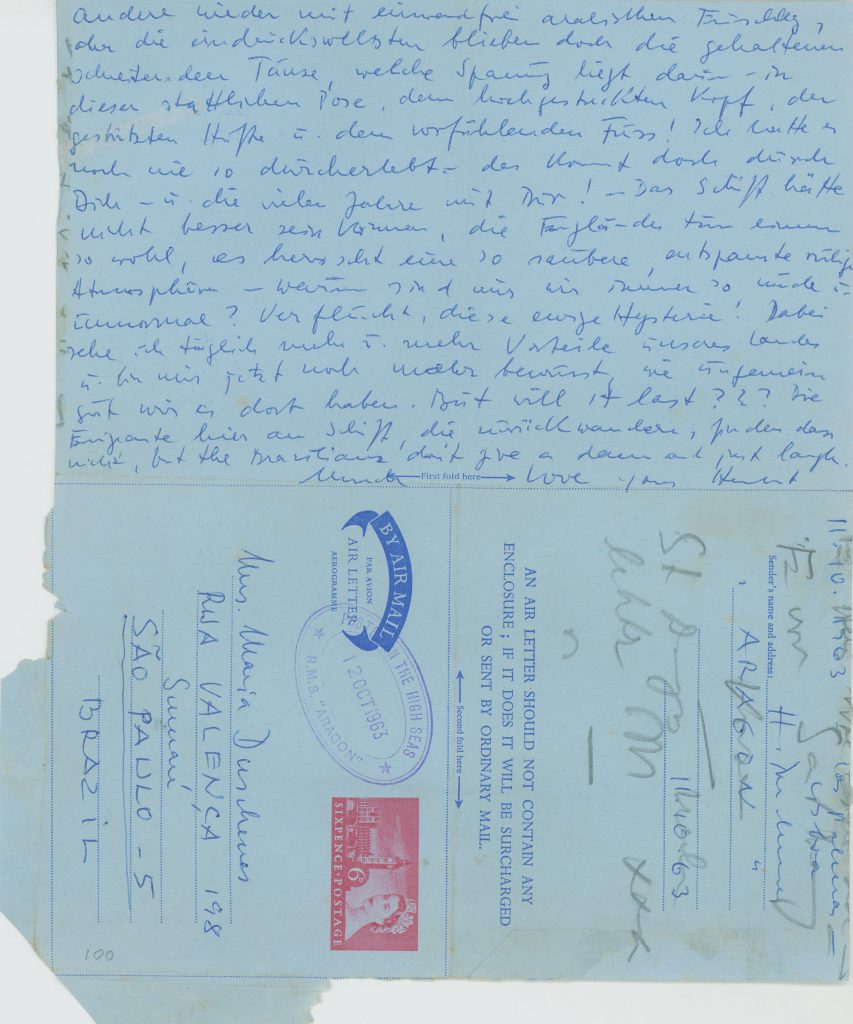 andere wieder mit einwandfrei arabischem Einschlag,
aber die eindrucksvollsten blieben doch die gehaltenen
schreitenden Tänze, welche Spanung liegt darin – in
dieser stattlichen Pose, dem hochgestreckten Kopf, der
gestützten Hüfte u. dem vorfühlenden Fuss! Ich hatte es
noch nie so durcherlebt – das kommt doch durch
Dich – u. die vielen Jahre mit Dir! – Das Schiff hätte
nicht besser sein können, die Engländer tun einem
so wohl, es herrscht eine so saubere, entspannte ruhige
Atmosphäre – warum sind wir nur immer so müde u.
unnormal? Verflucht, diese ewige Hysterie! Dabei
sehe ich täglich mehr u. mehr Vorteile unseres Landes
u. bin mir jetzt noch mehr bewusst, wie ungemein
gut wir es dort haben. But will it last??? Die
Emigrante hier am Schiff, die zurückwandern, finden das
nicht, but the Brasilians don't give a damn and just laugh.
Love yours
First fold here
BY AIR MAIL
PAR AVION
AIR LETTER
AEROGRAMME
ON THE HIGH SEAS
12 OCT 1963
R.M.S. "ARAGON"
SIXPENCE·POSTAGE
6D
Mrs. Maria Duschenes
RUA VALENÇA 198
Sumaré
SÃO PAULO – 5
BRAZIL
100
Second fold here
AN AIR LETTER SHOULD NOT CONTAIN ANY
ENCLOSURE; IF IT DOES IT WILL BE SURCHARGED
OR SENT BY ORDINARY MAIL.
Sender's name and address:
"ARAGON"